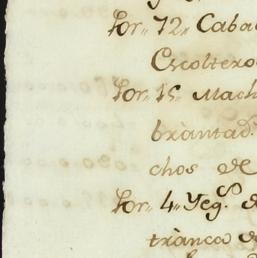 Por,, 72,, Caba
Escoltero
Por,, 15,, Mach
brantad.
chos de
Por,, 4,, Yeg.s d
tranca d